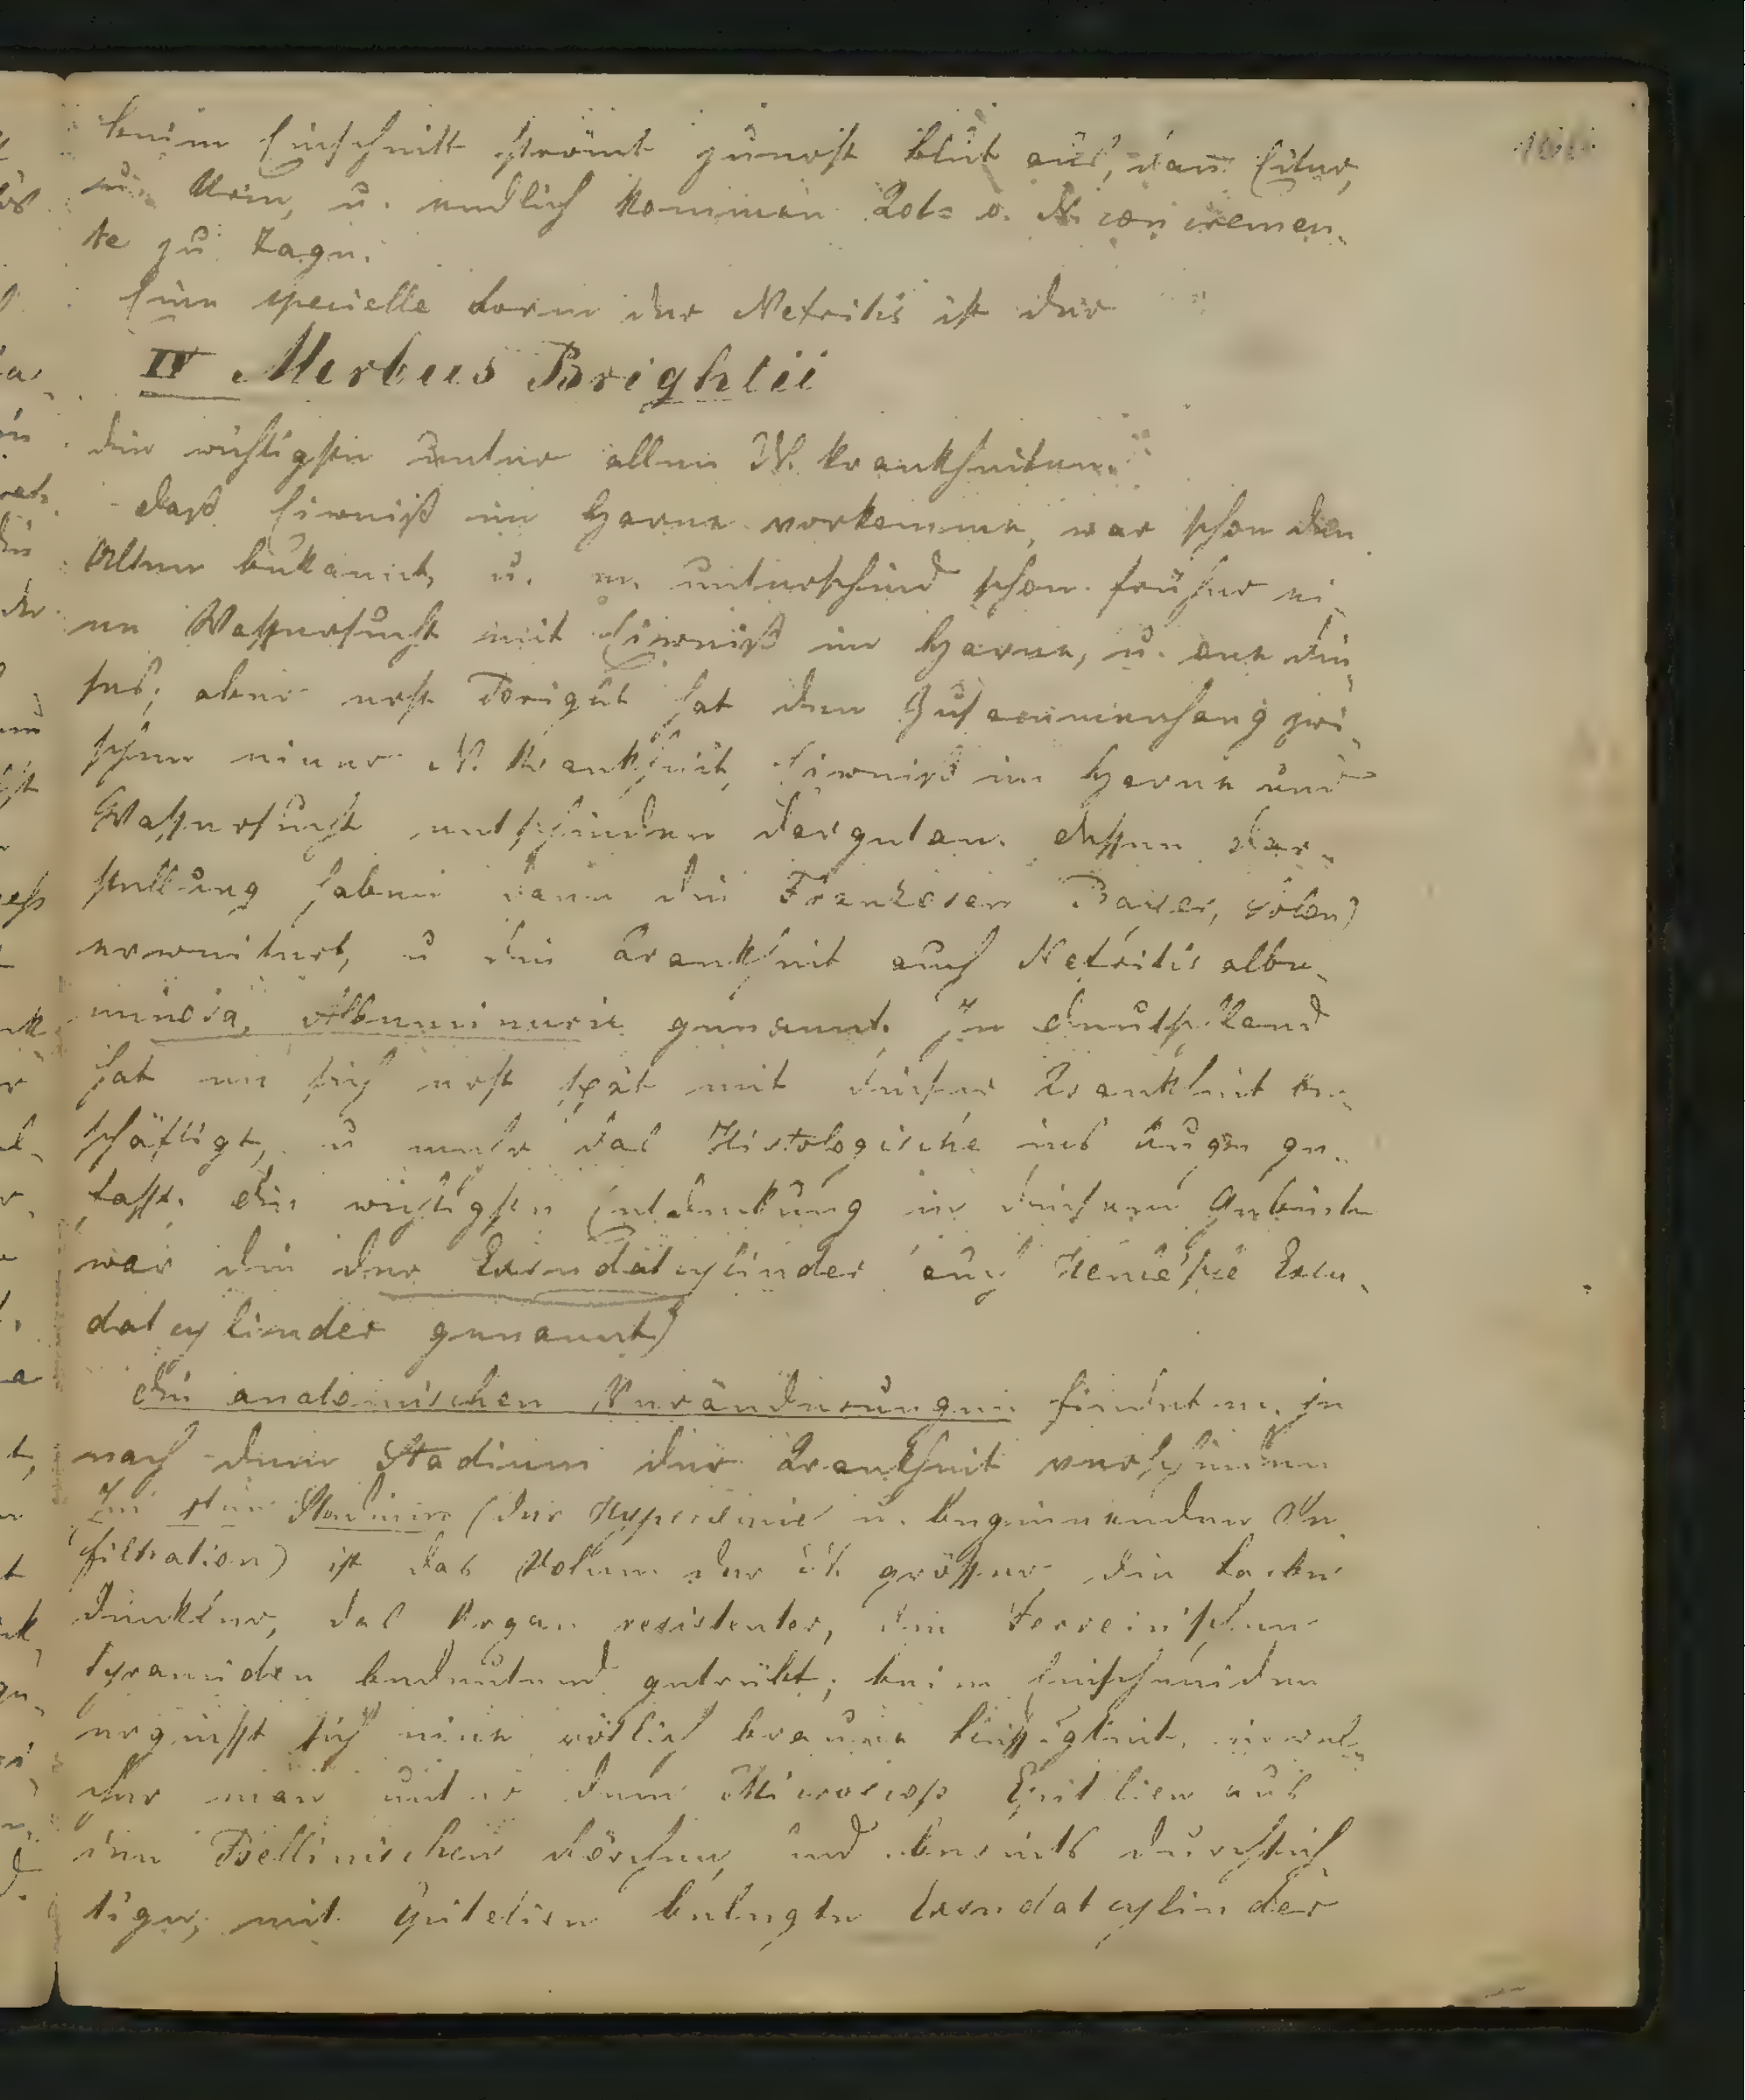 beim Einschnitt strömt zuerst Blut aus, dann Eiter,
Urin, u. endlich kommen Kot= o. N. concremen-
te zu Tage.
Eine specielle Form der Nefritis ist der
IV Morbus Brightii
die wichtigste unter allen N. krankheiten.
Daß Eiweiß im Harne vorkomme, war schon den
Alten bekannt, u. m. unterschied schon früher ei-
ne Wassersucht mit Eiweiß im Harne, u. one die-
ses; aber erst Brigt hat den Zusammenhang zwi-
schen einer N. Krankheit, Eiweiß im Harne und
Wassersucht entschieden dargetan. Dessen Dar-
stellung haben dann die Franzosen Rayer, Solon)
erweitert, u die Krankheit auch Nefritis albu-
minosa, Albuminurie genannt. In Deutschland
hat m sich erst spät mit dieser Krankheit be-
schäftigt, u mehr das Histologische ins Auge ge-
fasst. Die wichtigste Entdekung in diesem Gebiete
war die der Exsudatcylinder auch Henle'sche Exsu-
datcylinder genannt)
Die anatomischen Veränderungen findet m. je
nach dem Stadium der Krankheit verschieden
Im 1ten Stadium (der Hyperämie u. beginnenden In-
filtration) ist das Volum der N. grösser, die Farbe
dunkler, das Organ resistenter, die Ferrein'schen
Pyramiden bedeutend getrübt; beim Einschneiden
ergiesst sich eine rötlich braune Flüssigkeit, in wel-
cher man unter dem Microscop Epitelien aus
den Bellinischen Rörchen, und bereits durchsich-
tige, mit Epitelien belegte Exsudatcylinder